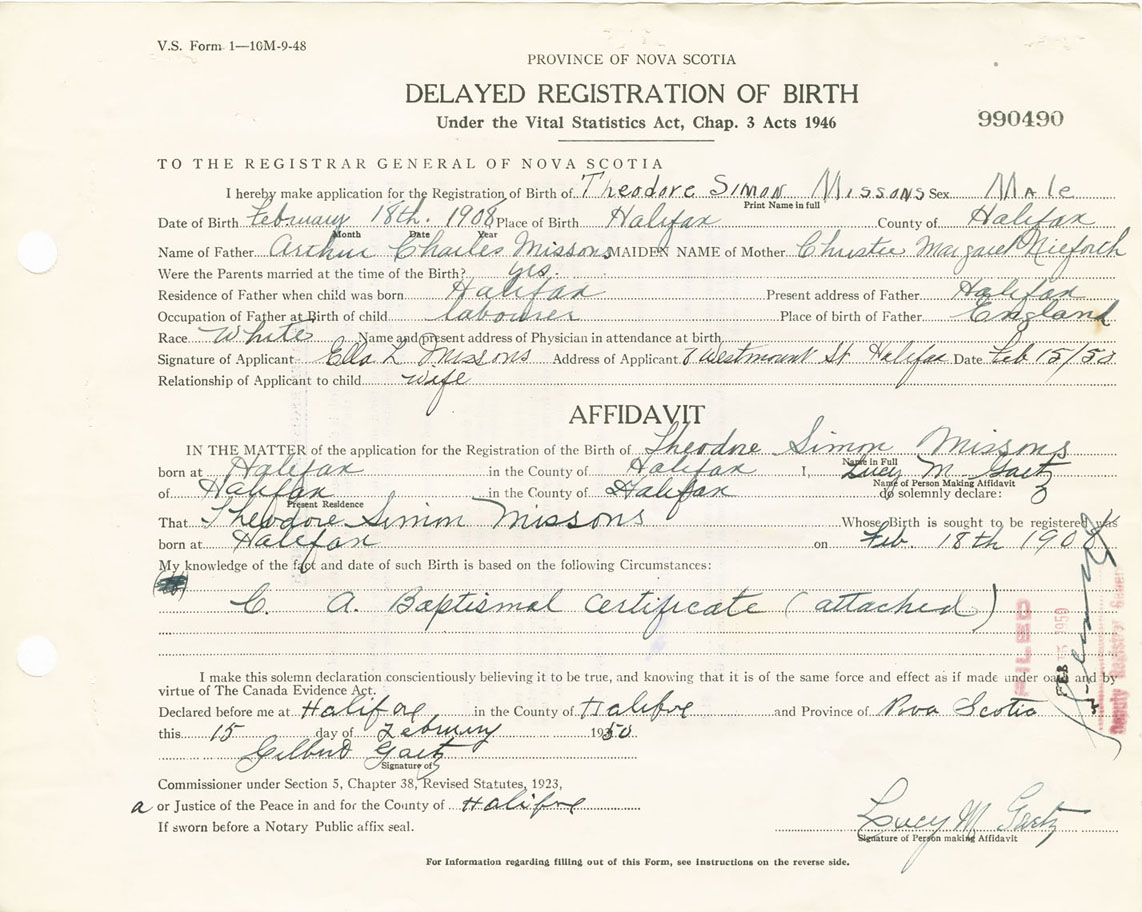 V.S. Form 1—10M-9-48
PROVINCE OF NOVA SCOTIA
DELAYED REGISTRATION OF BIRTH
Under the Vital Statistics Act, Chap. 3 Acts 1946
990490
TO THE REGISTRAR GENERAL OF NOVA SCOTIA
I hereby make application for the Registration of Birth of Theodore Simon Missons Sex Male
Print Name in full
Date of Birth February 18th. 1908 Place of Birth Halifax County of Halifax
Month Date Year
Name of Father Arthur Charles Missons MAIDEN NAME of Mother Christie Margaret Nieforth
Were the Parents married at the time of the Birth? yes.
Residence of Father when child was born Halifax Present address of Father Halifax
Occupation of Father at Birth of child labourer Place of birth of Father England
Race White Name and present address of Physician in attendance at birth
Signature of Applicant Ella L. Missons Address of Applicant 7 Westmount St Halifax Date Feb 15/50
Relationship of Applicant to child wife
AFFIDAVIT
IN THE MATTER of the application for the Registration of the Birth of Theodore Simon Missons
Name in Full
born at Halifax in the County of Halifax I, Lucy M. Gaetz
Name of Person Making Affidavit
of Halifax in the County of Halifax do solemnly declare:
Present Residence
That Theodore Simon Missons Whose Birth is sought to be registered was
born at Halifax on Feb. 18th 1908
My knowledge of the fact and date of such Birth is based on the following Circumstances:
C. A. Baptismal Certificate (attached)
FILED
FEB 15 1950
Deputy Registrar General
I make this solemn declaration conscientiously believing it to be true, and knowing that it is of the same force and effect as if made under oath and by
virtue of The Canada Evidence Act.
Declared before me at Halifax in the County of Halifax and Province of Nova Scotia
this 15 day of February 1950
Gilbert Gaetz
Signature of
Commissioner under Section 5, Chapter 38, Revised Statutes, 1923,
a or Justice of the Peace in and for the County of Halifax
If sworn before a Notary Public affix seal.
Lucy M Gaetz
Signature of Person making Affidavit
For Information regarding filling out of this Form, see instructions on the reverse side.